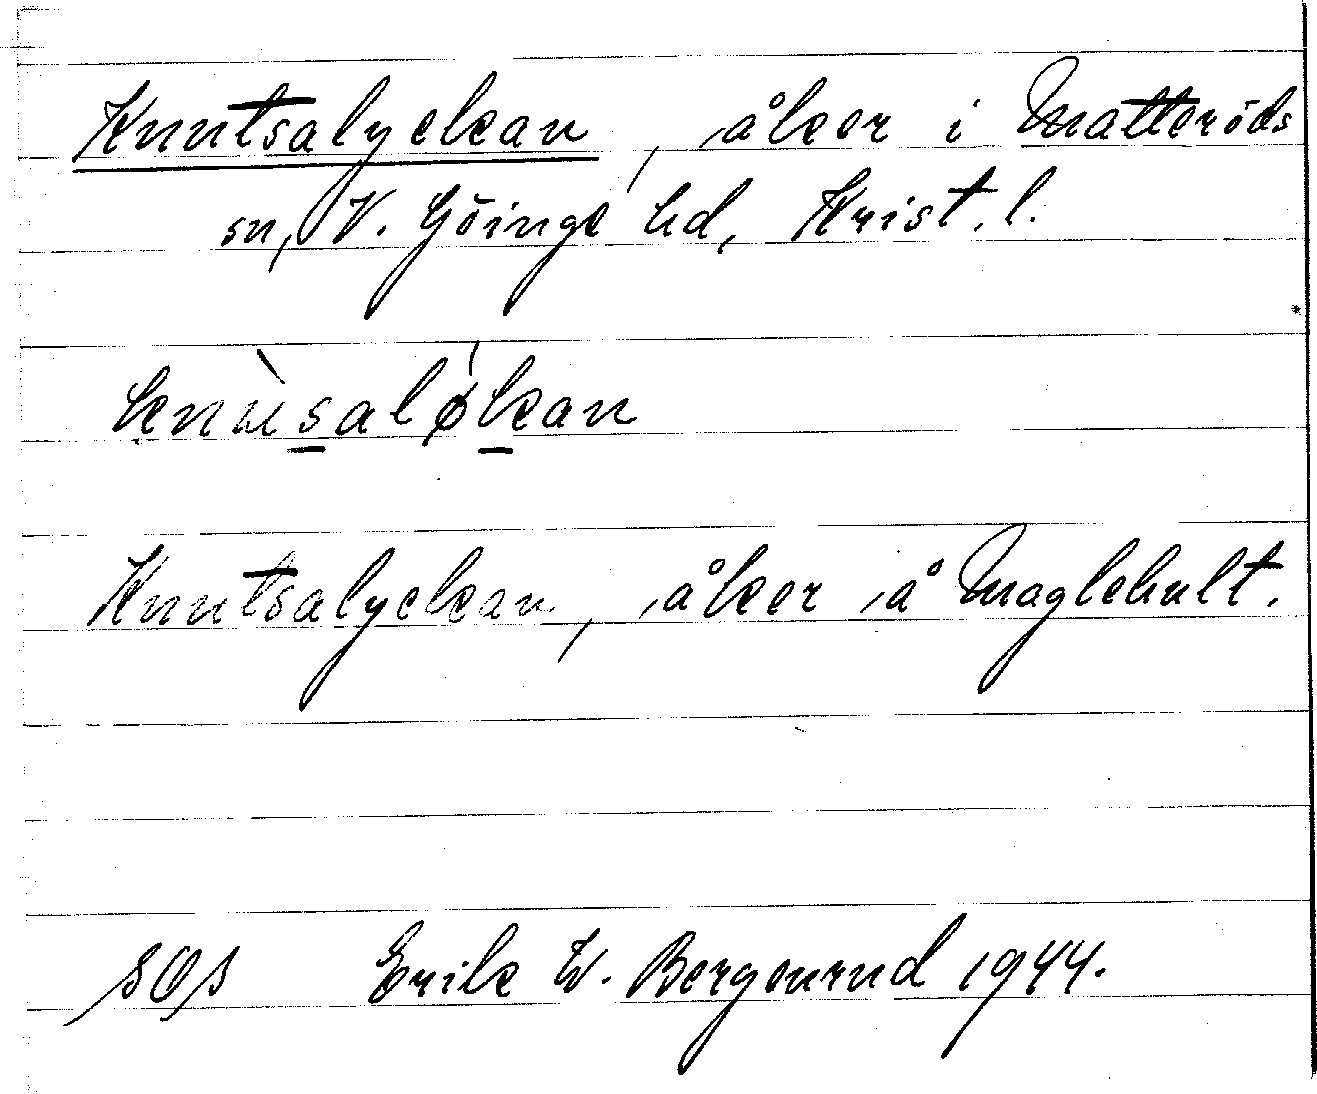 Knutsalyckan, åker i Matteröds
sn, V. Göinge hd, Krist. l.
knùsaløkan
Knutsalyckan, åker å Maglehult.
SOS Erik W. Bergenrud 1944.